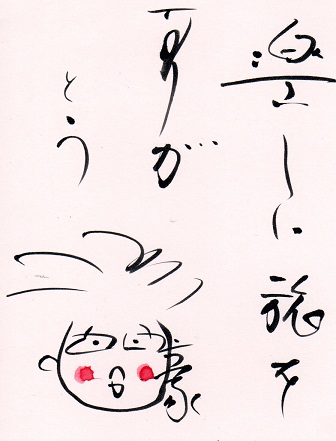 楽しい旅を
ありが…
とう
豪